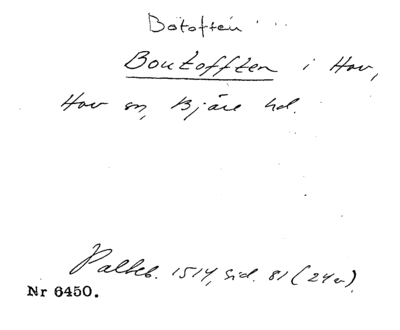 Botoften
Boutofften i Hov,
Hov sn, Bjäre hd.
Palteb. 1514, sid. 81 (24v).
Nr 6450.